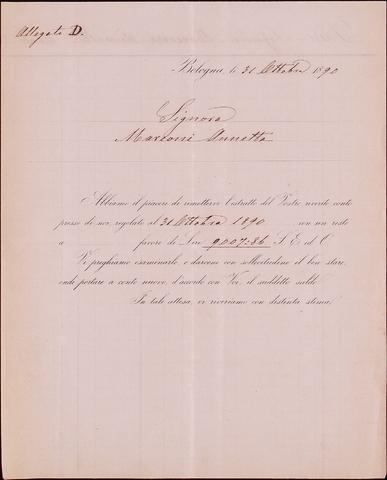 Allegato D.
Bologna, li 31 Ottobre 1890
Signora
Marconi Annetta
Abbiamo il piacere di rimettervi l'estratto del Vostro riverito conto
presso di noi, regolato al 31 Ottobre 1890 con un resto
a favore di Lire 9007:86 S. E. ed O.
Vi preghiamo esaminarlo, e darcene con sollecitudine il ben stare,
onde portare a conto nuovo, d'accordo con Voi, il suddetto saldo.
In tale attesa, vi riveriamo con distinta stima.